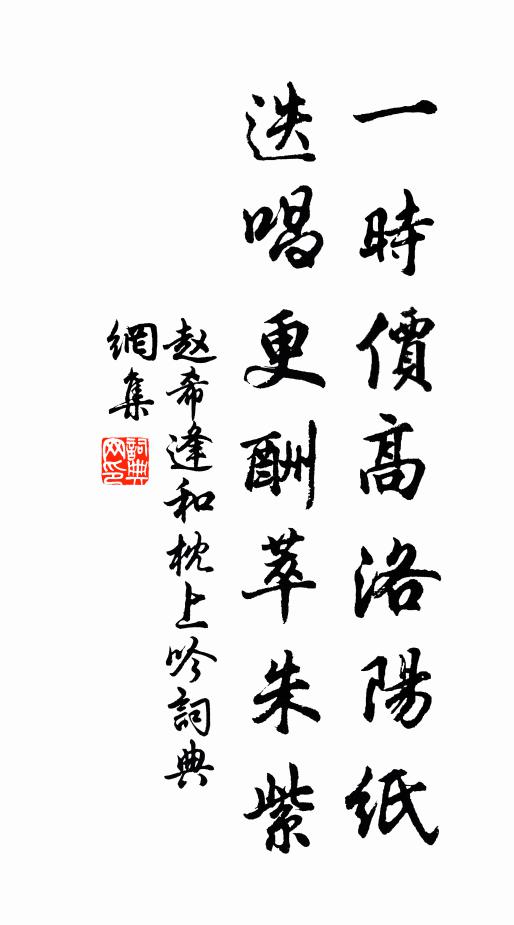 一時價高洛陽紙
迭唱更酬萃朱紫
赵希逢和枕上吟詞典
網集
詞典
网印